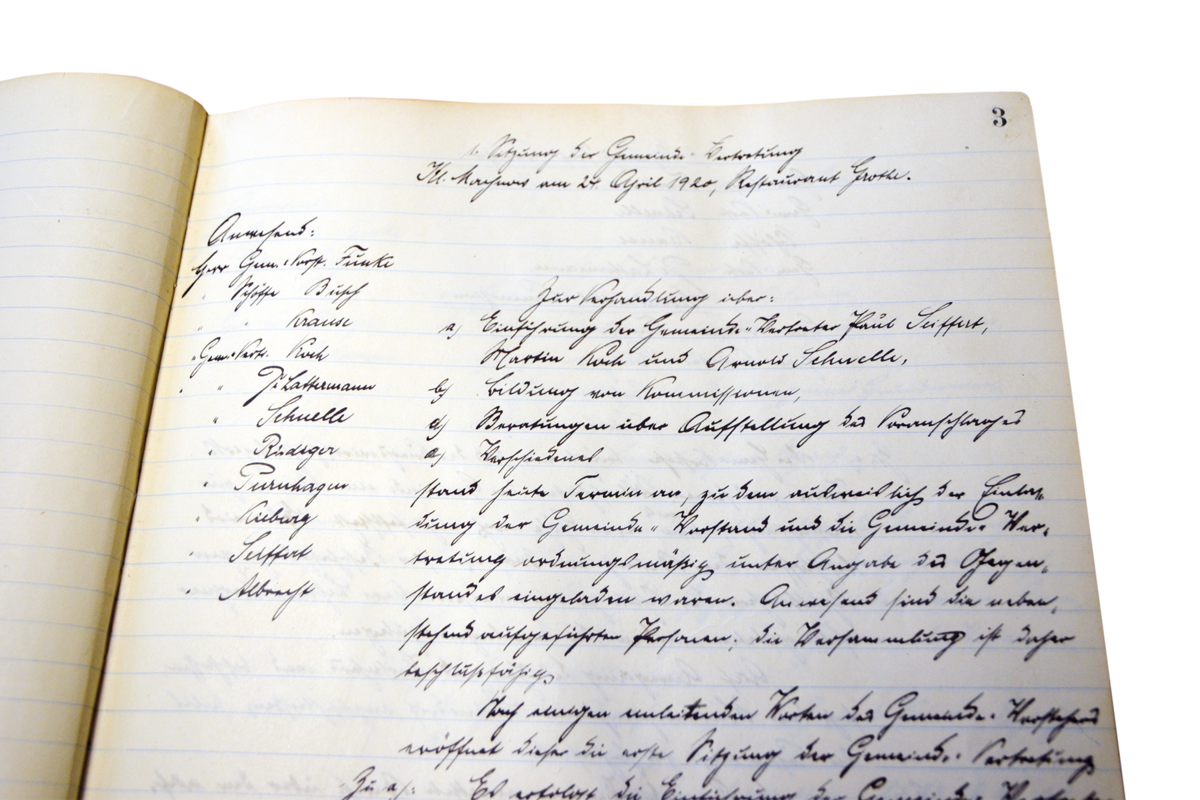 3
1. Sitzung der Gemeinde-Vertretung
Kl. Machnow am 24. April 1920, Restaurant Grothe.
Anwesend:
Herr Gem.-Vorst. Funke
" Schöffe Busch
" " Krause
" Gem.-Vertr. Koch
" " P. Lattermann
" Schnelle
" Rüdeger
" Purnhagen
" Kieburg
" Seiffert
" Albrecht
Zur Verhandlung über:
a) Einführung der Gemeinde-Vertreter Paul Seiffert,
Martin Koch und Arnold Schnelle,
b) Bildung von Kommissionen,
c) Beratungen über Aufstellung des Voranschlages
d) Verschiedenes
stand heute Termin an, zu dem ausweislich der Einla-
dung der Gemeinde-Vorstand und die Gemeinde-Ver-
tretung ordnungsmäßig unter Angabe des Gegen-
standes eingeladen waren. Anwesend sind die neben-
stehend aufgeführten Personen; die Versammlung ist daher
beschlußfähig.
Nach einigen einleitenden Worten des Gemeinde-Vorstehers
eröffnet dieser die erste Sitzung der Gemeinde-Vertretung
Zu a): Es erfolgt die Einführung der Gemeinde-